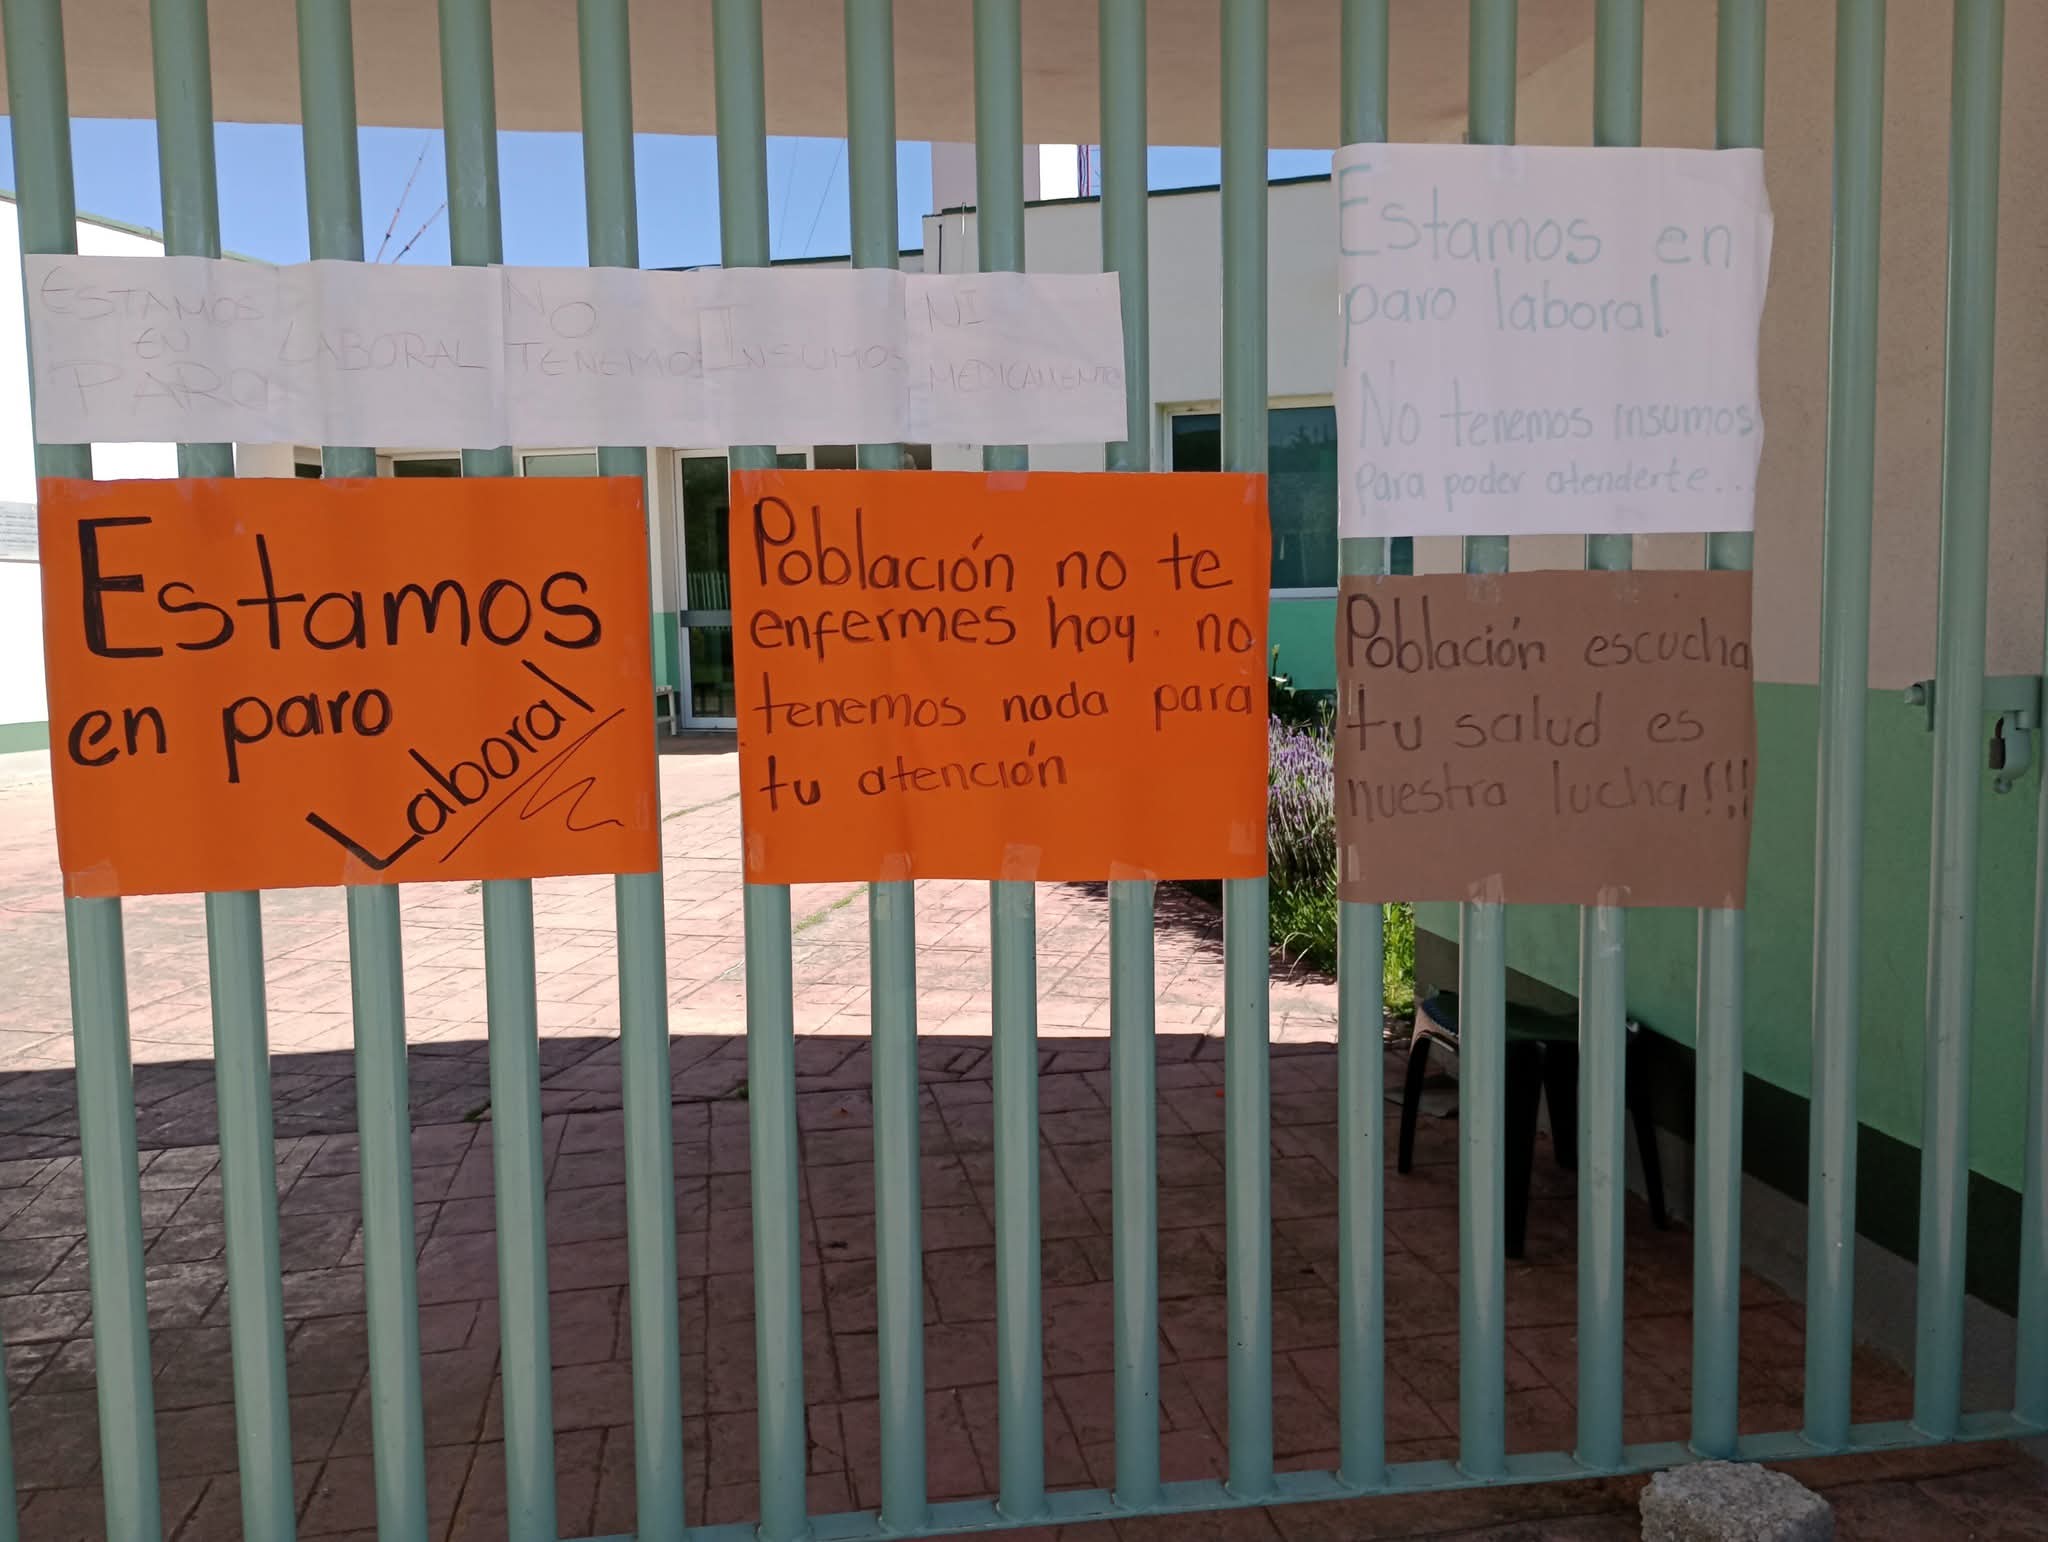 ESTAMOS
EN
PARO
LABORAL
NO
TENEMOS
INSUMOS
NI
MEDICAMENTO
Estamos
en paro
Laboral
Población no te
enfermes hoy. no
tenemos nada para
tu atención
Estamos en
paro laboral.
No tenemos insumos
para poder atenderte...
Población escucha
tu salud es
nuestra lucha!!!